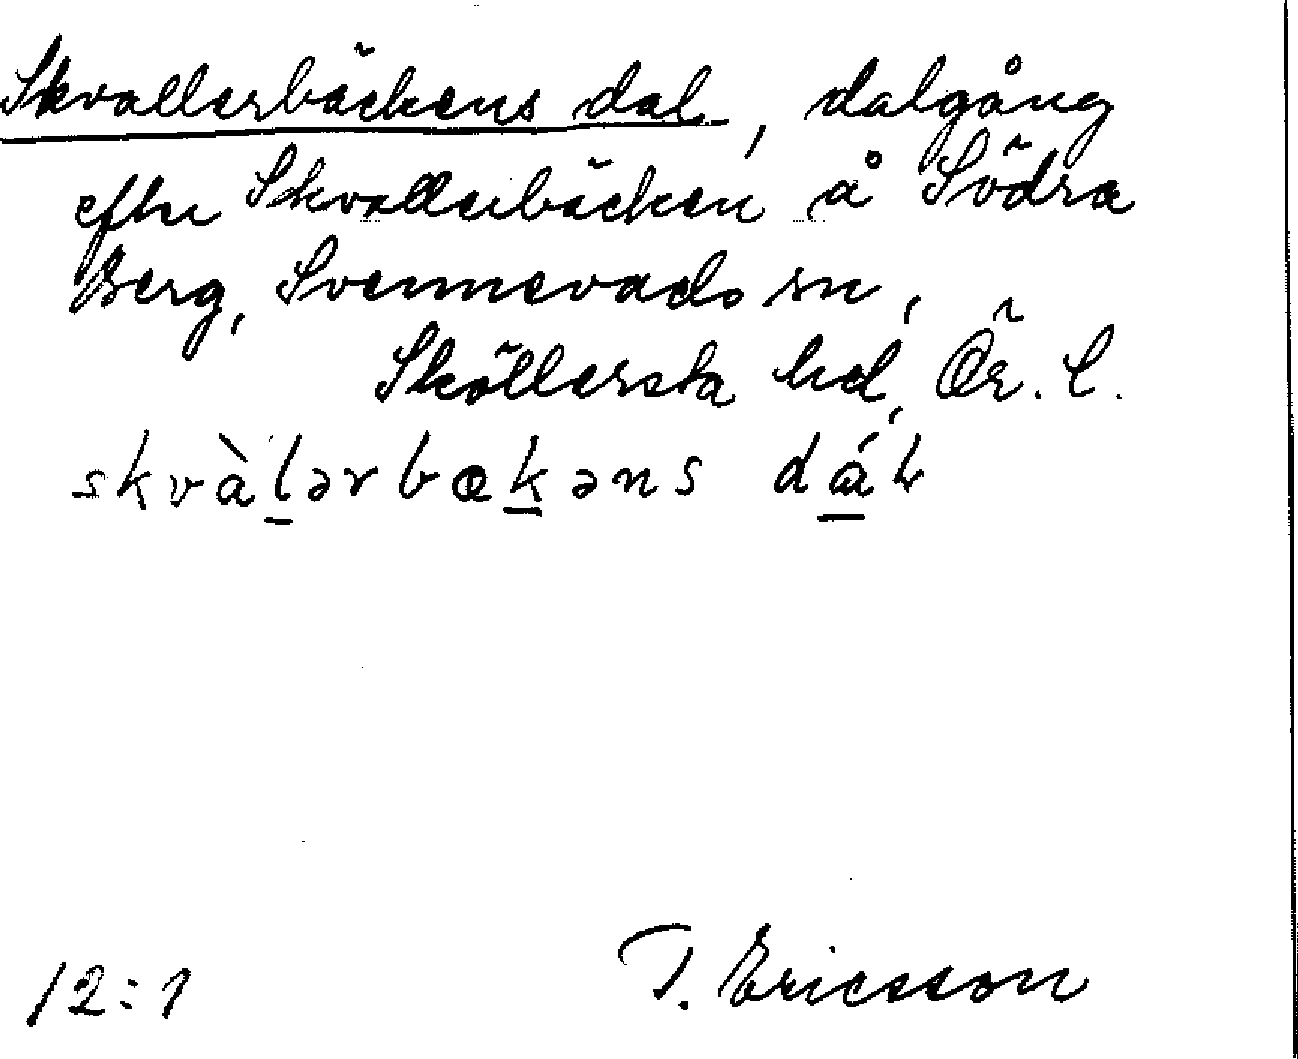 Skvallerbäckens dal, dalgång
efter Skvallerbäcken å Södra
Berg, Svennevads sn,
Sköllersta hd, Ör. l.
skvàlərbækəns dáɫ
12:1
T. Ericsson